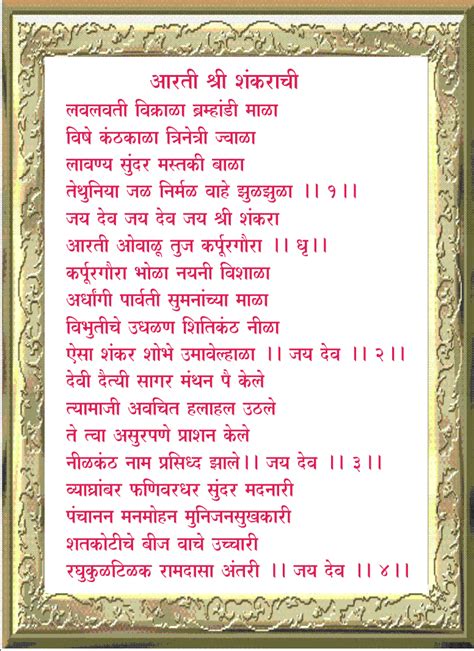 आरती श्री शंकराची
लवलवती विक्राळा ब्रम्हांडी माळा
विषे कंठकाळा त्रिनेत्री ज्वाळा
लावण्य सुंदर मस्तकी बाळा
तेथुनिया जळ निर्मळ वाहे झुळझुळा ।। १।।
जय देव जय देव जय श्री शंकरा
आरती ओवाळू तुज कर्पूरगौरा ।। धृ।।
कर्पूरगौरा भोळा नयनी विशाळा
अर्धांगी पार्वती सुमनांच्या माळा
विभुतीचे उधळण शितिकंठ नीळा
ऐसा शंकर शोभे उमावेल्हाळा ।। जय देव ।। २।।
देवी दैत्यी सागर मंथन पै केले
त्यामाजी अवचित हलाहल उठले
ते त्वा असुरपणे प्राशन केले
नीळकंठ नाम प्रसिध्द झाले।। जय देव ।। ३।।
व्याघ्रांबर फणिवरधर सुंदर मदनारी
पंचानन मनमोहन मुनिजनसुखकारी
शतकोटीचे बीज वाचे उच्चारी
रघुकुळटिळक रामदासा अंतरी ।। जय देव ।। ४।।